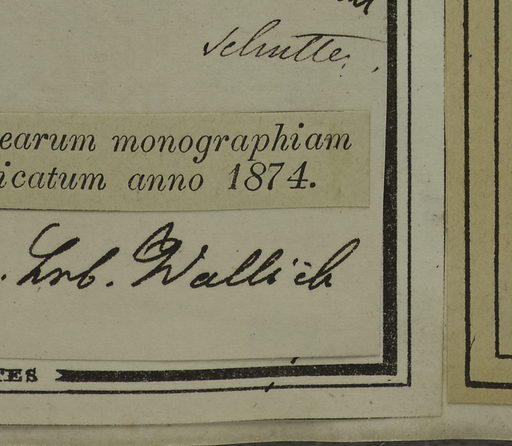 Schutte.
earum monographiam
icatum anno 1874.
. hrb. Wallich
TES